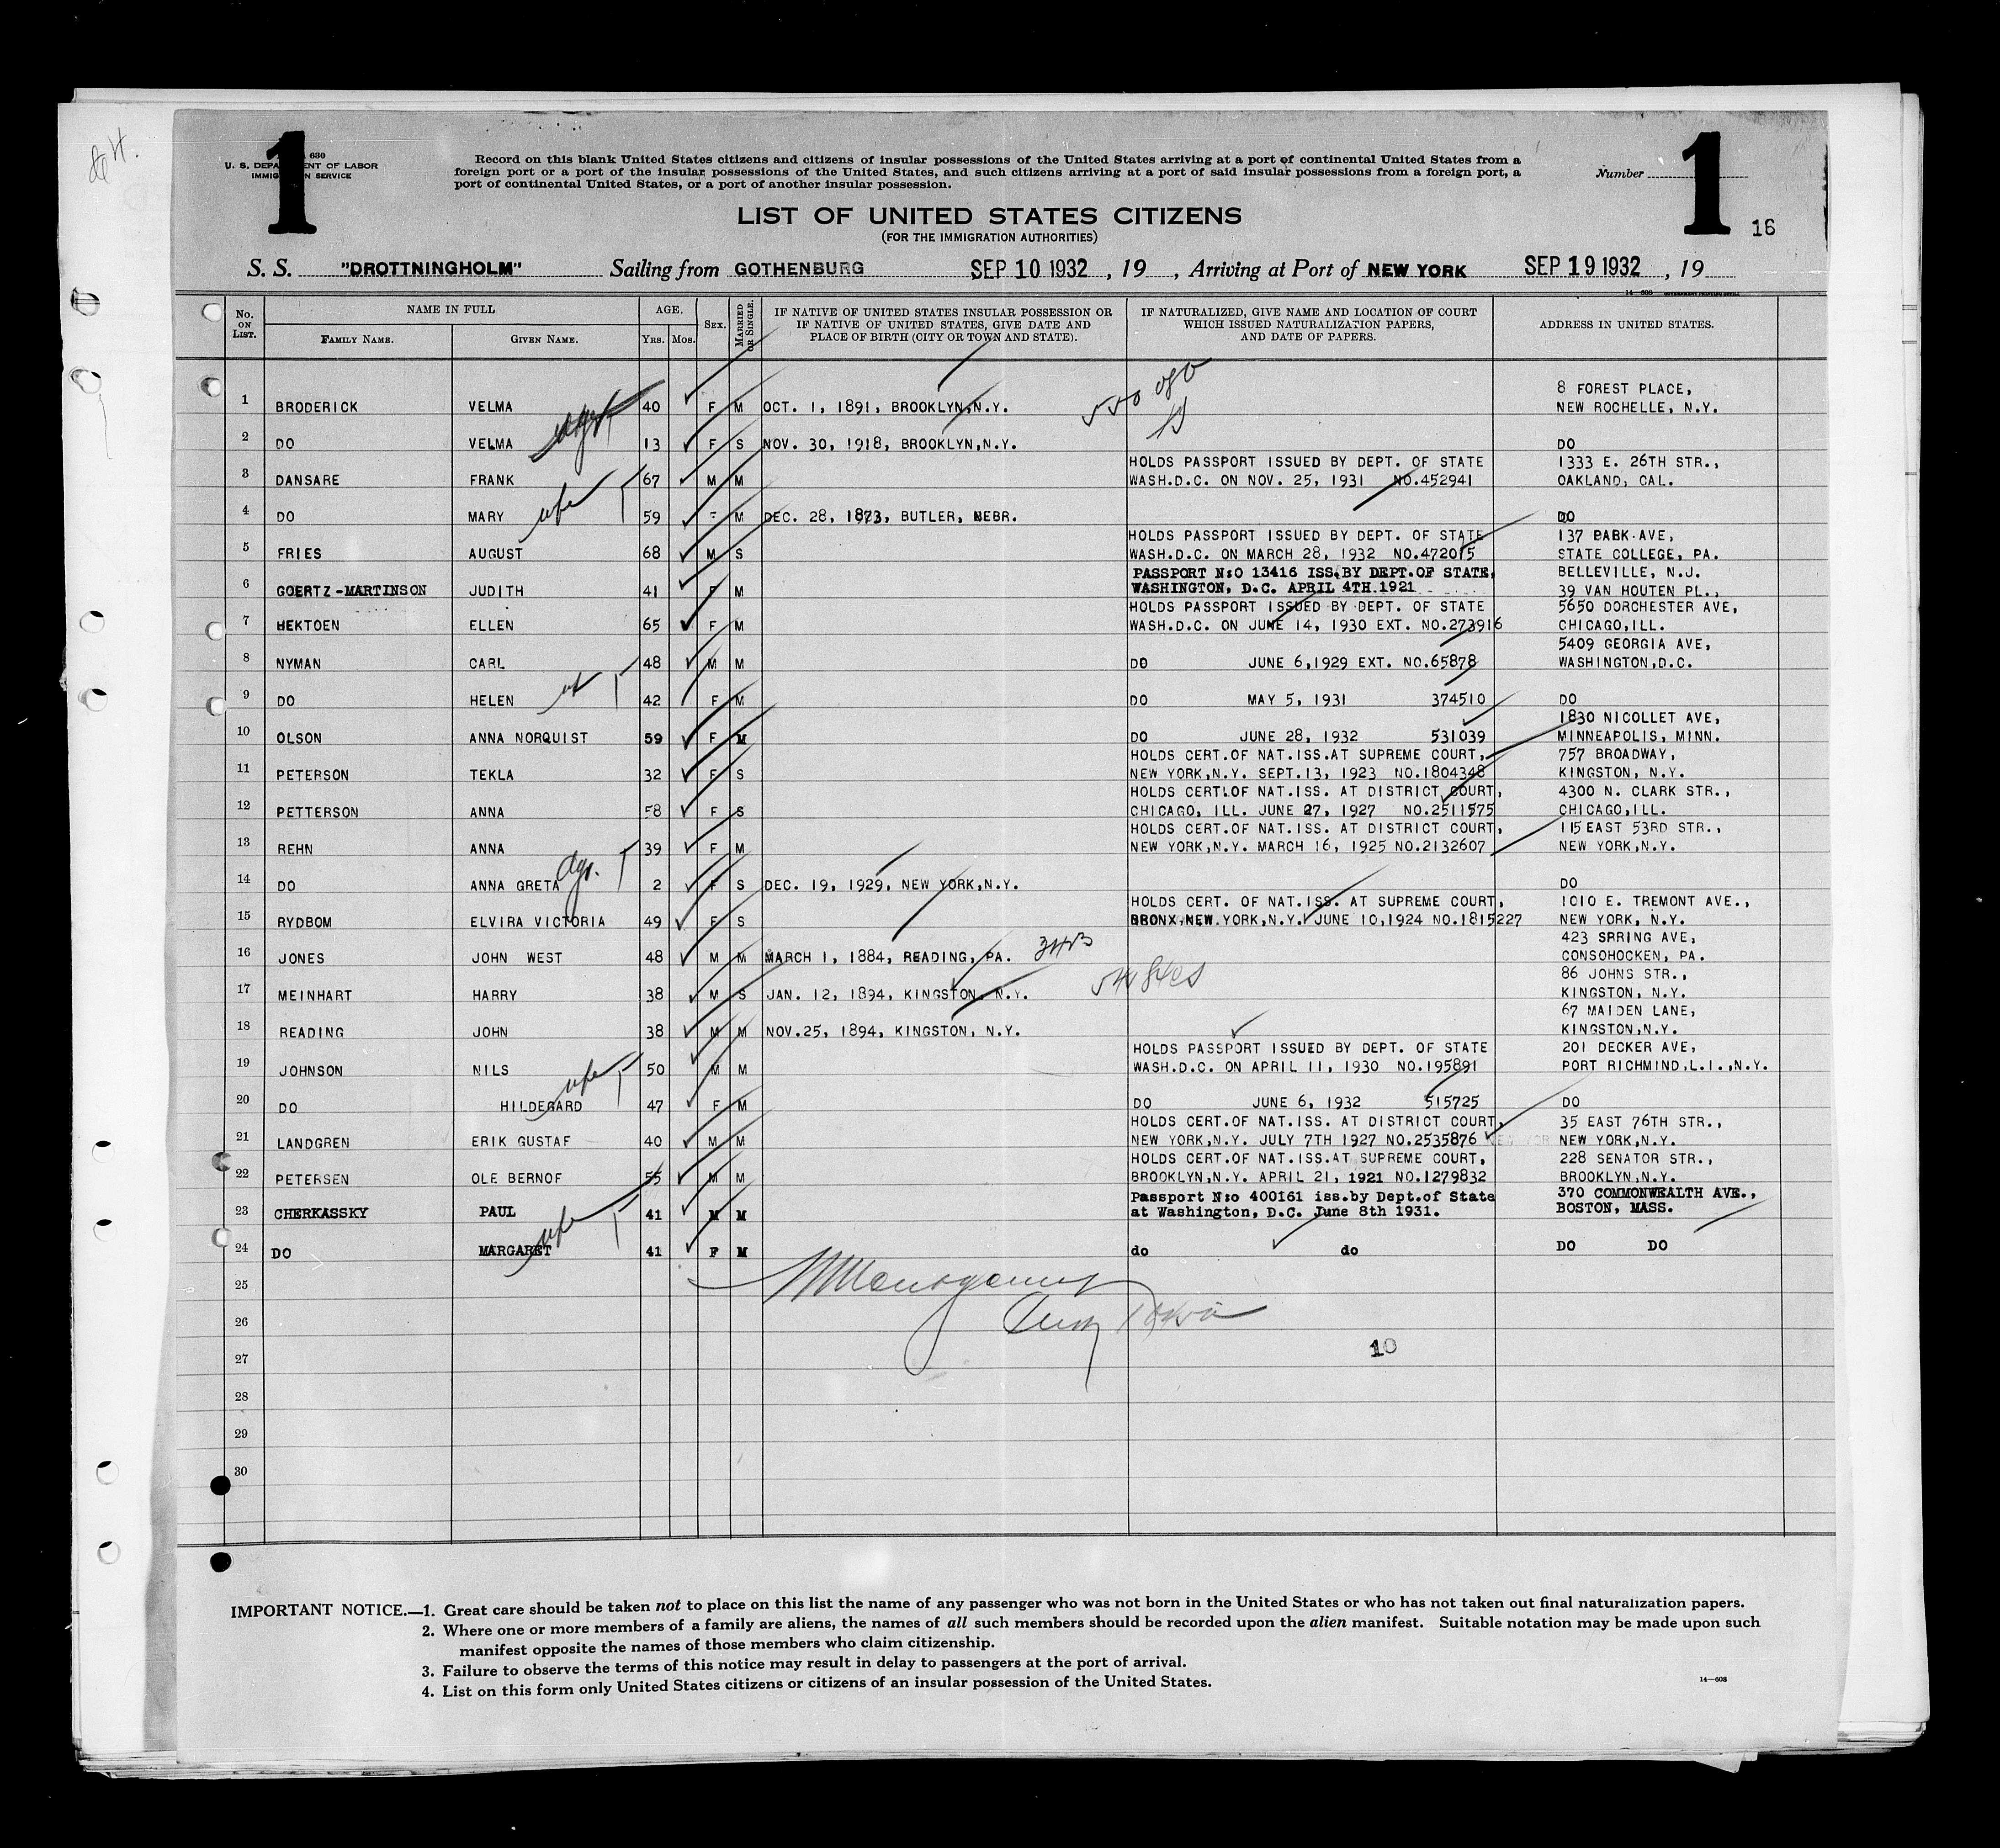 1
1
630
U. S. DEPARTMENT OF LABOR
IMMIGRATION SERVICE
Record on this blank United States citizens and citizens of insular possessions of the United States arriving at a port of continental United States from a
foreign port or a port of the insular possessions of the United States, and such citizens arriving at a port of said insular possessions from a foreign port, a
port of continental United States, or a port of another insular possession.
Number
16
LIST OF UNITED STATES CITIZENS
(FOR THE IMMIGRATION AUTHORITIES)
S. S. "DROTTNINGHOLM" Sailing from GOTHENBURG SEP 10 1932, 19 , Arriving at Port of NEW YORK SEP 19 1932, 19
No. ON LIST. NAME IN FULL AGE. SEX. MARRIED OR SINGLE. IF NATIVE OF UNITED STATES INSULAR POSSESSION OR IF NATIVE OF UNITED STATES, GIVE DATE AND PLACE OF BIRTH (CITY OR TOWN AND STATE). IF NATURALIZED, GIVE NAME AND LOCATION OF COURT WHICH ISSUED NATURALIZATION PAPERS, AND DATE OF PAPERS. ADDRESS IN UNITED STATES.
FAMILY NAME. GIVEN NAME. YRS. MOS.
8 FOREST PLACE,
1 BRODERICK VELMA 40 F M OCT. 1, 1891, BROOKLYN,N.Y. NEW ROCHELLE, N.Y.
2 DO VELMA 13 F S NOV. 30, 1918, BROOKLYN,N.Y. DO
HOLDS PASSPORT ISSUED BY DEPT. OF STATE 1333 E. 26TH STR.,
3 DANSARE FRANK 67 M M WASH.D.C. ON NOV. 25, 1931 NO.452941 OAKLAND, CAL.
4 DO MARY wife 59 F M DEC. 28, 1873, BUTLER, NEBR. DO
HOLDS PASSPORT ISSUED BY DEPT. OF STATE 137 PARK AVE,
5 FRIES AUGUST 68 M S WASH.D.C. ON MARCH 28, 1932 NO.472015 STATE COLLEGE, PA.
PASSPORT N:O 13416 ISS.BY DEPT.OF STATE, BELLEVILLE, N.J.
6 GOERTZ-MARTINSON JUDITH 41 F M WASHINGTON, D.C. APRIL 4TH.1921 39 VAN HOUTEN PL.,
HOLDS PASSPORT ISSUED BY DEPT. OF STATE 5650 DORCHESTER AVE,
7 HEKTOEN ELLEN 65 F M WASH.D.C. ON JUNE 14, 1930 EXT. NO.273916 CHICAGO,ILL.
5409 GEORGIA AVE,
8 NYMAN CARL 48 M M DO JUNE 6,1929 EXT. NO.65878 WASHINGTON,D.C.
9 DO HELEN 42 F M DO MAY 5, 1931 374510 DO
1830 NICOLLET AVE,
10 OLSON ANNA NORQUIST 59 F M DO JUNE 28, 1932 531039 MINNEAPOLIS, MINN.
HOLDS CERT.OF NAT.ISS.AT SUPREME COURT, 757 BROADWAY,
11 PETERSON TEKLA 32 F S NEW YORK,N.Y. SEPT.13, 1923 NO.1804348 KINGSTON, N.Y.
HOLDS CERT.OF NAT.ISS. AT DISTRICT COURT, 4300 N. CLARK STR.,
12 PETTERSON ANNA 58 F S CHICAGO, ILL. JUNE 27, 1927 NO.2511575 CHICAGO,ILL.
HOLDS CERT.OF NAT.ISS. AT DISTRICT COURT, 115 EAST 53RD STR.,
13 REHN ANNA 39 F M NEW YORK,N.Y. MARCH 16, 1925 NO.2132607 NEW YORK,N.Y.
14 DO ANNA GRETA 2 F S DEC. 19, 1929, NEW YORK,N.Y. DO
HOLDS CERT. OF NAT.ISS. AT SUPREME COURT, 1010 E. TREMONT AVE.,
15 RYDBOM ELVIRA VICTORIA 49 F S BRONX,NEW YORK,N.Y. JUNE 10,1924 NO.1815227 NEW YORK, N.Y.
423 SPRING AVE,
16 JONES JOHN WEST 48 M M MARCH 1, 1884, READING, PA. CONSOHOCKEN, PA.
86 JOHNS STR.,
17 MEINHART HARRY 38 M S JAN. 12, 1894, KINGSTON, N.Y. KINGSTON, N.Y.
67 MAIDEN LANE,
18 READING JOHN 38 M M NOV.25, 1894, KINGSTON, N.Y. KINGSTON,N.Y.
HOLDS PASSPORT ISSUED BY DEPT. OF STATE 201 DECKER AVE,
19 JOHNSON NILS 50 M M WASH.D.C. ON APRIL 11, 1930 NO.195891 PORT RICHMIND,L.I.,N.Y.
20 DO HILDEGARD wife 47 F M DO JUNE 6, 1932 515725 DO
HOLDS CERT.OF NAT.ISS. AT DISTRICT COURT, 35 EAST 76TH STR.,
21 LANDGREN ERIK GUSTAF 40 M M NEW YORK,N.Y. JULY 7TH 1927 NO.2535876 NEW YORK,N.Y.
HOLDS CERT.OF NAT.ISS.AT SUPREME COURT, 228 SENATOR STR.,
22 PETERSEN OLE BERNOF 55 M M BROOKLYN,N.Y. APRIL 21, 1921 NO.1279832 BROOKLYN,N.Y.
Passport N:o 400161 iss.by Dept.of State 370 COMMONWEALTH AVE.,
23 CHERKASSKY PAUL 41 M M at Washington, D.C. June 8th 1931. BOSTON, MASS.
24 DO MARGARET wife 41 F M do do DO DO
25
26
27 10
28
29
30
IMPORTANT NOTICE.—1. Great care should be taken not to place on this list the name of any passenger who was not born in the United States or who has not taken out final naturalization papers.
2. Where one or more members of a family are aliens, the names of all such members should be recorded upon the alien manifest. Suitable notation may be made upon such
manifest opposite the names of those members who claim citizenship.
3. Failure to observe the terms of this notice may result in delay to passengers at the port of arrival.
4. List on this form only United States citizens or citizens of an insular possession of the United States.
14—608